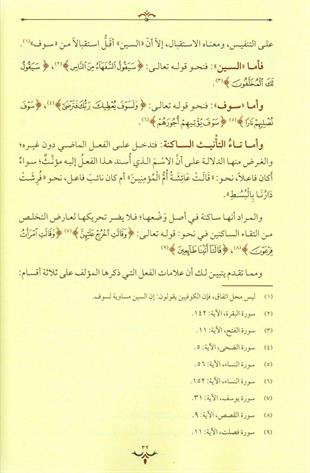 على التنفيس، ومعناه الاستقبال، إلا أنّ «السين» أقلّ استقبالاً من «سوف»(١).
فأما «السين»: فنحو قوله تعالى: ﴿سَيَقُولُ السُّفَهَاءُ مِنَ النَّاسِ﴾(٢)، ﴿سَيَقُولُ
لَكَ الْمُخَلَّفُونَ﴾(٣)
وأما «سوف»: فنحو قوله تعالى: ﴿وَلَسَوْفَ يُعْطِيكَ رَبُّكَ فَتَرْضَى﴾(٤)، ﴿سَوْفَ
نُصْلِيهِمْ نَارًا﴾(٥) ﴿سَوْفَ يُؤْتِيهِمْ أُجُورَهُمْ﴾(٦).
وأما تاءُ التأنيث الساكنة: فتدخل على الفعل الماضي دون غيره؛
والغرض منها الدلالة على أنّ الاسْمَ الذي أُسند هذا الفعلُ إليه مؤنَّثٌ؛ سواءٌ
أكان فاعلاً، نحو: «قَالَتْ عَائِشَةُ أُمُّ المُؤْمِنِينَ» أم كان نائب فاعل، نحو «فُرِشَتْ
دَارُنَا بِالْبُسُطِ».
والمراد أنها ساكنة في أصل وَضْعها؛ فلا يضر تحريكها لعارض التخلص
من التقاء الساكنين في نحو: قوله تعالى: ﴿وَقَالَتِ اخْرُجْ عَلَيْهِنَّ﴾(٧) ﴿وَقَالَتِ امْرَأَتُ
فِرْعَوْنَ﴾(٨)، ﴿قَالَتَا أَتَيْنَا طَائِعِينَ﴾(٩)
ومما تقدم يتبين لك أن علامات الفعل التي ذكرها المؤلف على ثلاثة أقسام:
(١) ليس محل اتفاق، فإن الكوفيين يقولون: إن السين مساوية لسوف.
(٢) سورة البقرة، الآية: ١٤٢.
(٣) سورة الفتح، الآية: ١١.
(٤) سورة الضحى، الآية: ٥.
(٥) سورة النساء، الآية: ٥٦.
(٦) سورة النساء، الآية: ١٥٢.
(٧) سورة يوسف، الآية: ٣١.
(٨) سورة القصص، الآية: ٩.
(٩) سورة فصلت، الآية: ١١.